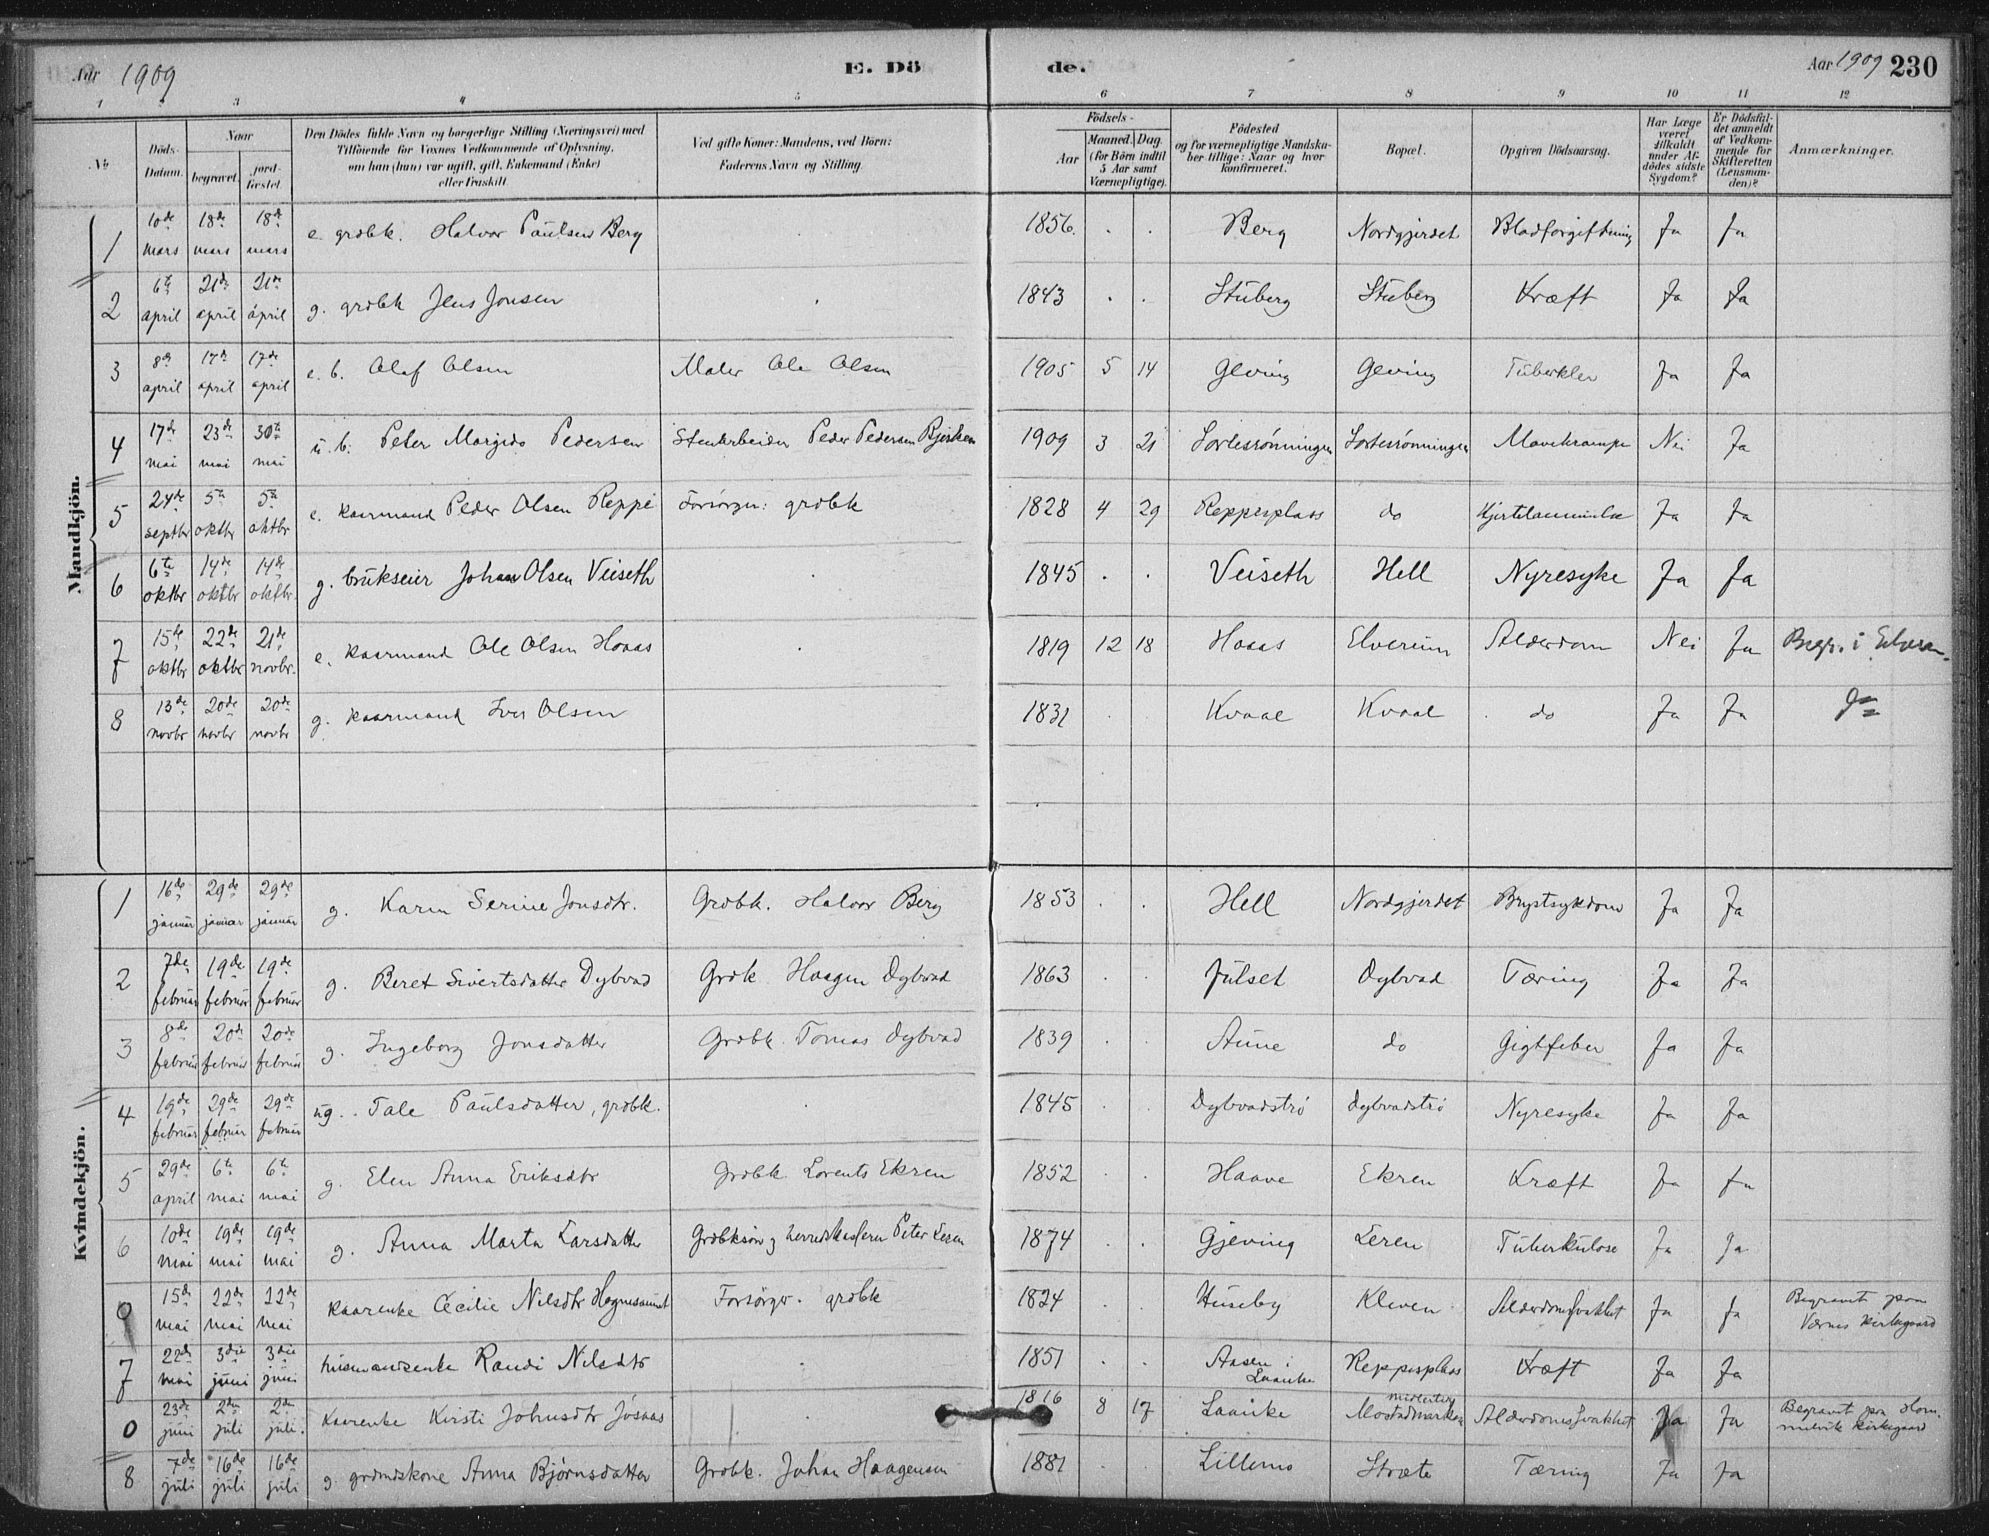 Aar 1909 E. Dö de. Aar 1909 230
1 2 3 4 5 6 7 8 9 10 11 12
№ Döds-Datum. Naar begravet. jord-fæstet. Den Dödes fulde Navn og borgerlige Stilling (Næringsvei) med Tilföiende for Voxnes Vedkommende af Oplysning, om han (hun) var ugift, gift, Enkemand (Enke) eller fraskilt. Ved gifte Koner: Mandens, ved Börn: Faderens Navn og Stilling. Födsels- Aar Maaned. Dag. (for Börn indtil 5 Aar samt Værnepligtige). Födested og for værnepligtige Mandskaber tillige: Naar og hvor konfirmeret. Bopæl. Opgiven Dödsaarsag. Har Læge været tilkaldt under Afdödes sidste Sygdom? Er Dödsfaldet anmeldt af Vedkommende for Skifteretten (Lensmanden)? Anmærkninger.
Mandkjön.
1 10de mars 18de mars 18de mars e. grdbk. Halvor Paulsen Berg 1856. . . Berg Nordgjerdet Blodforgiftning Ja Ja
2 6te april 21de april 21de april g. grdbk Jens Jonsen . 1843 . . Stuberg Stuberg Kræft Ja Ja
3 8de april 17de april 17de april e. b. Olaf Olsen Maler Ole Olsen 1905 5 14 Geving Geving Tuberkler Ja Ja
4 17de mai 23de mai 30te mai u. b. Peter Margido Pedersen Stenarbeider Peder Pedersen Bjerken 1909 3 21 Sortesrønningen Sortesrønningen Mavekrampe Nei Ja
5 24de septbr 5te oktbr 5te oktbr e. kaarmand Peder Olsen Reppe Forsörger: grdbk 1828 4 29 Reppesplass do Hjertelammelse Ja Ja
6 6te oktbr 14de oktbr 14de oktbr. g. brukseier Johan Olsen Veiseth . 1845 . . Veiseth Hell Nyresyke Ja Ja
7 15de oktbr 22de oktbr 21de novbr. e. kaarmand Ole Olsen Hoaas . 1819 12 18 Hoaas Elverum Alderdom Nei Ja Begr. i Elverum.
8 13de novbr 20de novbr 20de novbr g. kaarmand Iver Olsen 1831 . Kvaal Kvaal . do Ja Ja
Kvindekjön.
1 16de januar 29de januar 29de januar g. Karen Serine Jonsdtr. Grdbk. Halvor Berg 1853 . . Hell Nordgjerdet Brystsykdom Ja Ja
2 7de februar 19de februar 19de februar g. Beret Sivertsdatter Dybvad Grdk Haagen Dybvad 1863 . . Julset Dybvad Tæring Ja Ja
3 8de februar 20de februar 20de februar g. Ingeborg Jonsdatter Grdbk. Tomas Dybvad 1839 . . Aune do Gigtfeber Ja Ja
4 19de februar 29de februar 29de februar ug. Tale Paulsdatter, grdbk. . 1845 . . Dybvadstrø Dybvadstrø Nyresyke Ja Ja
5 29de april 6te mai 6te mai g. Elen Anna Eriksdtr Grdbk. Lorents Ekren 1852 . . Haave Ekren Kræft Ja Ja
6 10de mai 19de mai 19de mai g. Anna Marta Larsdatter Grdbksøn og herredskasserer Peter Leren 1874 . . Gjeving Leren Tuberkulose Ja Ja
0 15de mai 22de mai 22de mai kaarenke Cecilie Nilsdtr Forsörger. grdbk 1824 . . Huseby Kleven Alderdomssvakhet Ja Ja Begravet paa Værnes kirkegaard
7 22de mai 3die juni 3die juni husmandsenke Randi Nilsdtr . 1851 . . Aasen i Laanke Reppesplass Kræft Ja Ja
0 23de juni 2den juli 2den juli. Kaarenke Kirsti Johnsdtr Jøsaas 1816 8 17 Laanke midlertidig Mostadmarken Alderdomssvakhet Ja Ja Begravet paa Hommelvik kirkegaard
8 7de juli 16de juli 16de juli g. grdmdskone Anna Bjørnsdatter Grdbk. Johan Haagensen 1881 . . Lillemo Stræte Tæring Ja Ja